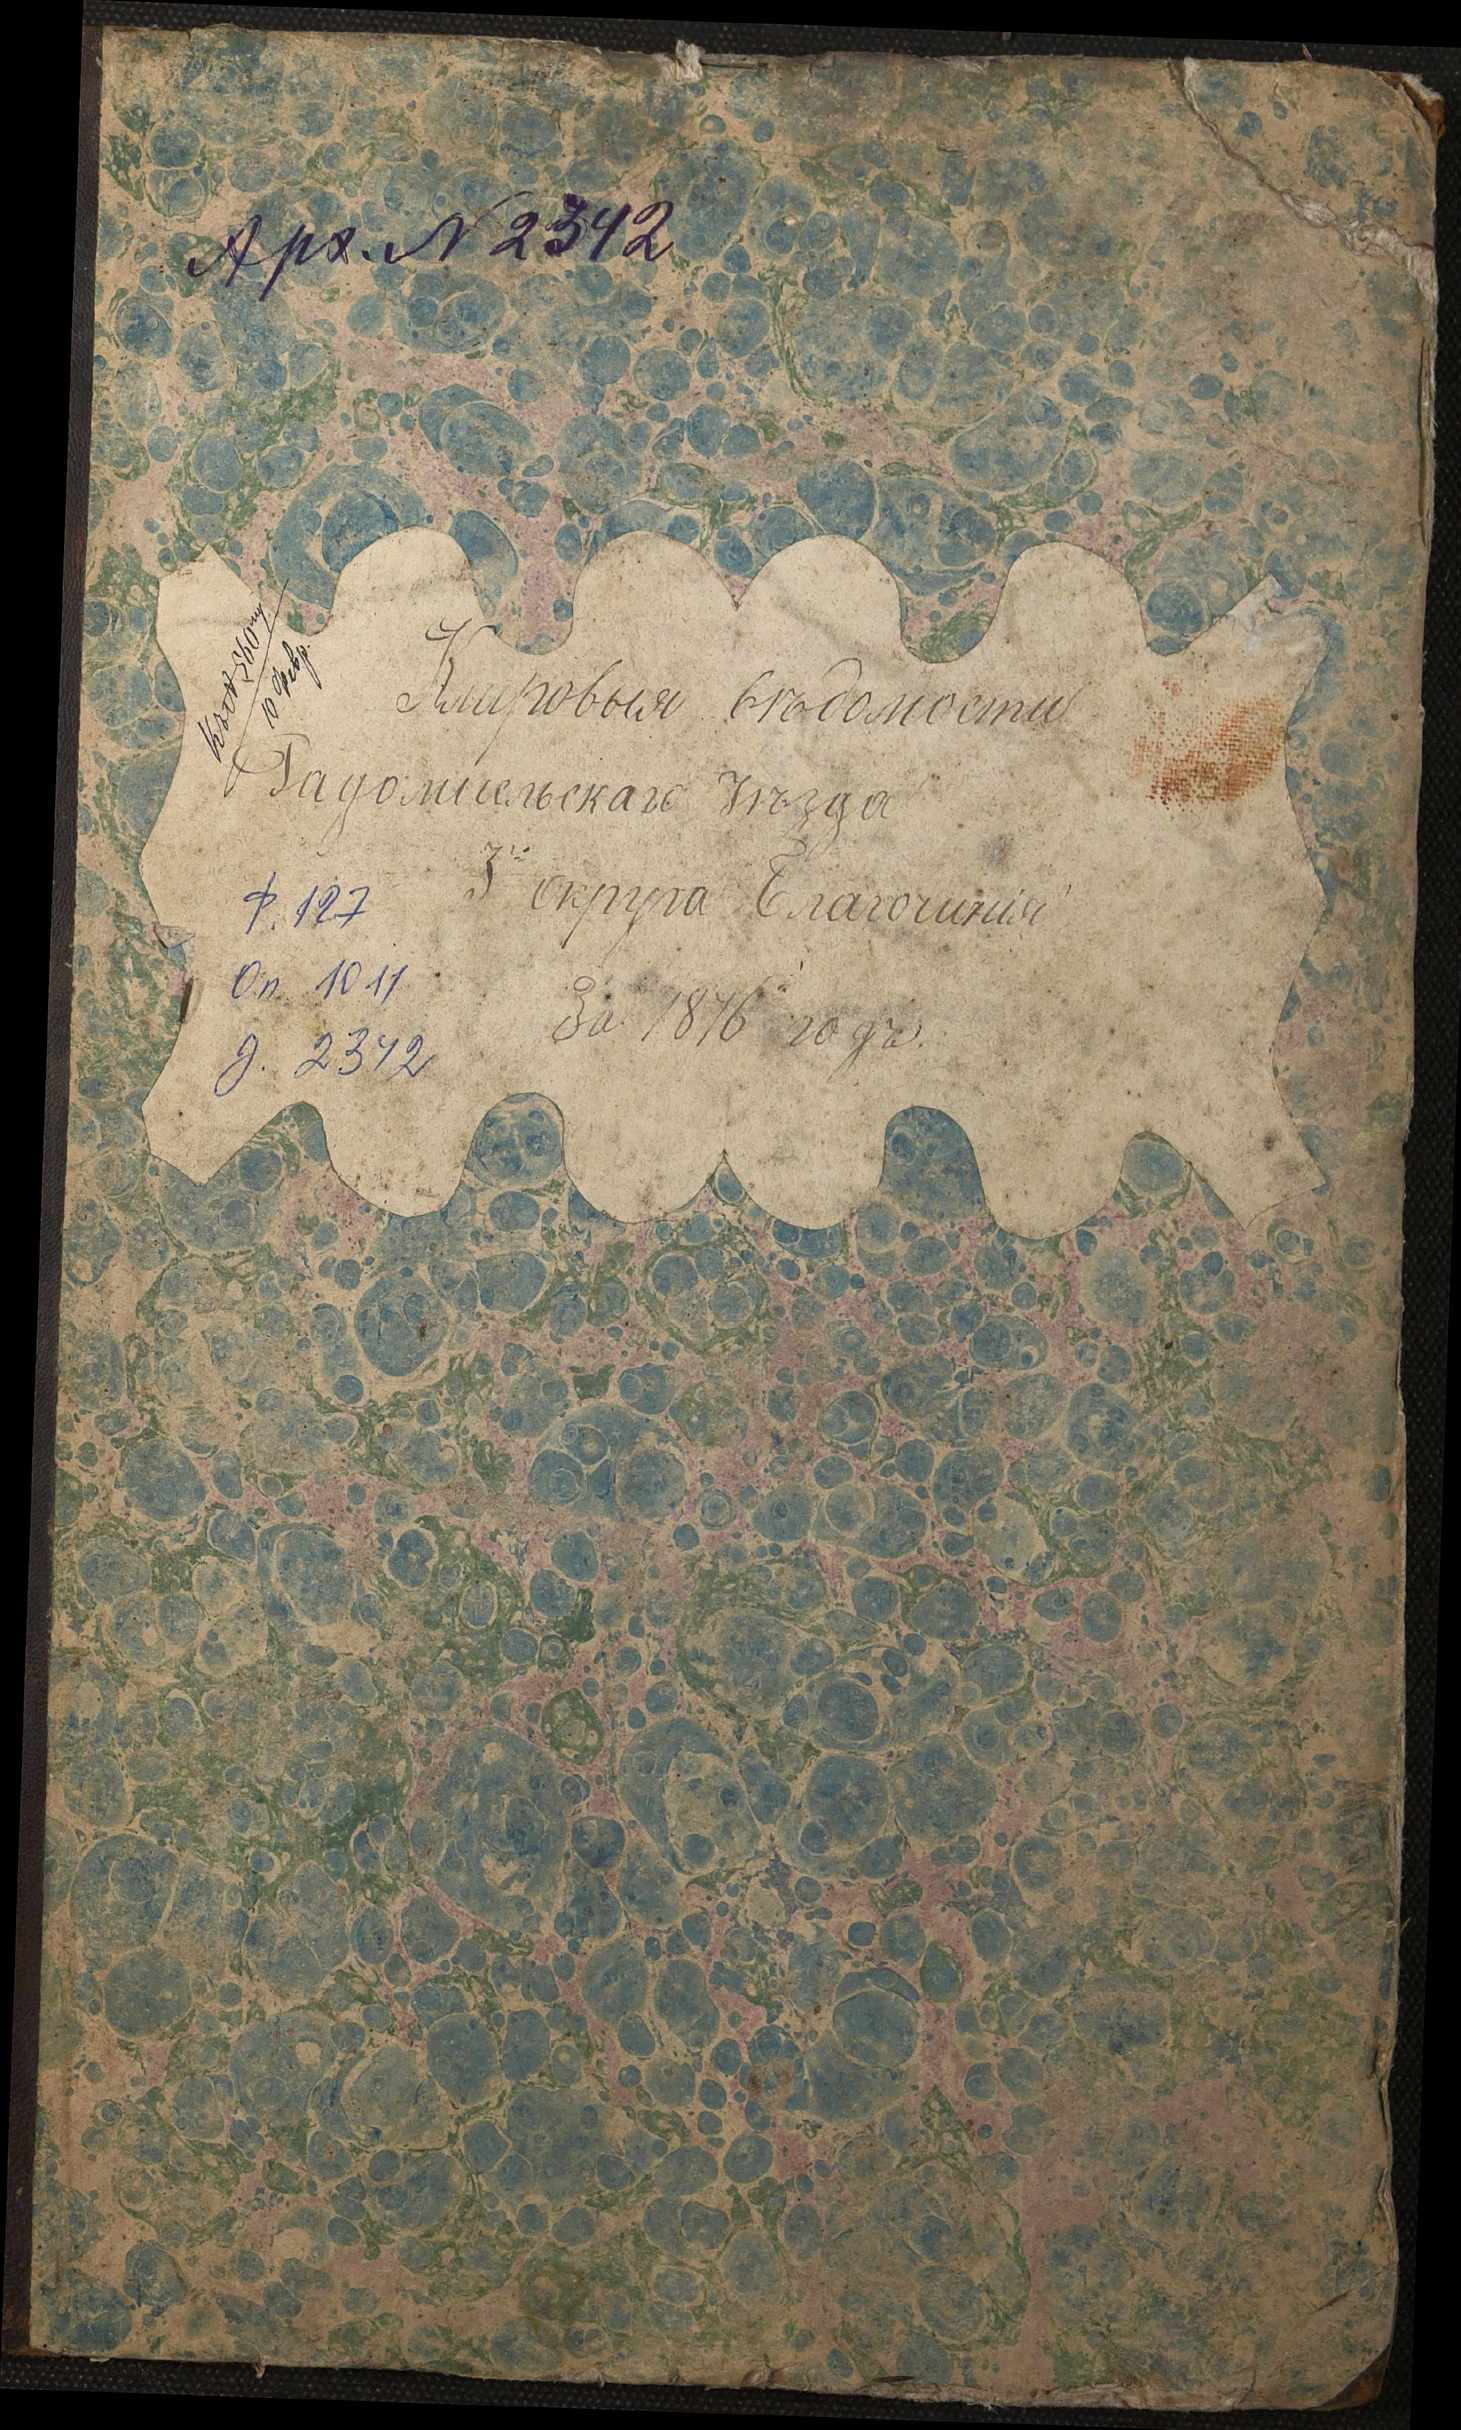 Арх. N 2342
Клировыя вѣдомости
Радомысльскаго Уѣзда
3го округа Благочинія
За 1876 годъ.
10 Февр.
Ф. 127
Оп. 1011
д. 2342